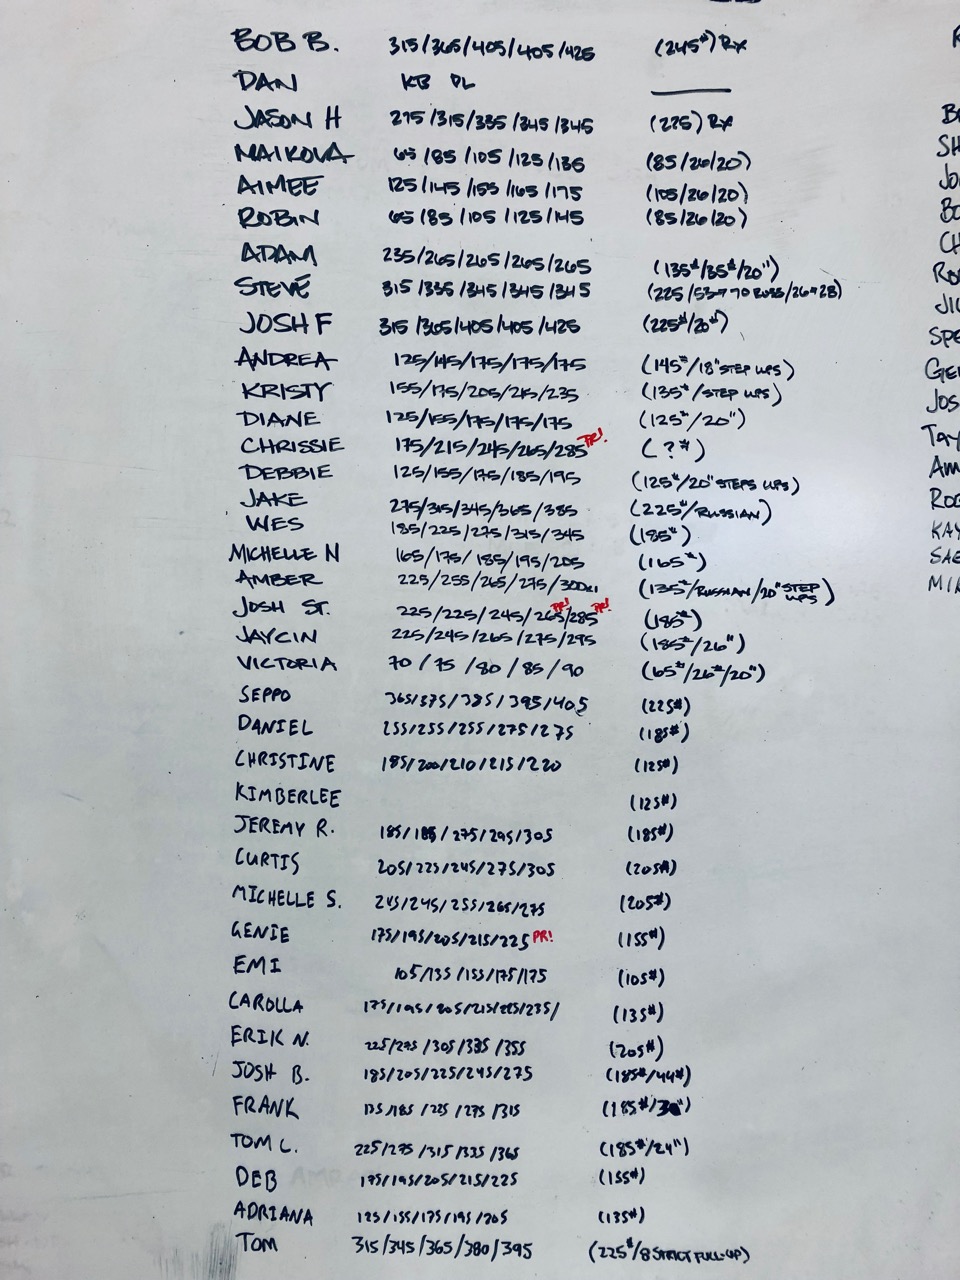 BOB B. 315/365/405/405/425 (245#) RX
DAN KB DL
JASON H 275/315/335/345/345 (225) RX
MAIKOVA 65/85/105/125/135 (85/26/20)
AIMEE 125/145/155/165/175 (105/26/20)
ROBIN 65/85/105/125/145 (85/26/20)
ADAM 235/265/265/265/265 (135#/35#/20")
STEVE 315/335/345/345/345 (225/53→70 RUSS/26→28)
JOSH F 315/365/405/405/425 (225#/20")
ANDREA 125/145/175/175/175 (145#/18" STEP UPS)
KRISTY 155/175/205/215/235 (135#/STEP UPS)
DIANE 125/155/175/175/175 (125#/20")
CHRISSIE 175/215/245/265/285 PR! (?#)
DEBBIE 125/155/175/185/195 (125#/20" STEPS UPS)
JAKE 275/315/345/365/385 (225#/RUSSIAN)
WES 185/225/275/315/345 (185#)
MICHELLE N 165/175/185/195/205 (165#)
AMBER 225/255/265/275/300 (135#/RUSSIAN/20" STEP UPS)
JOSH ST. 225/225/245/265 PR!/285 PR! (185#)
JAYCIN 225/245/265/275/295 (185#/26")
VICTORIA 70/75/80/85/90 (65#/26#/20")
SEPPO 365/375/385/395/405 (225#)
DANIEL 255/255/255/275/275 (185#)
CHRISTINE 185/200/210/215/220 (125#)
KIMBERLEE (125#)
JEREMY R. 185/185/275/295/305 (185#)
CURTIS 205/225/245/275/305 (205#)
MICHELLE S. 245/245/255/265/275 (205#)
GENIE 175/195/205/215/225 PR! (155#)
EMI 105/135/155/175/175 (105#)
CAROLLA 175/195/205/215/225/235/ (135#)
ERIK N. 225/275/305/335/355 (205#)
JOSH B. 185/205/225/245/275 (185#/44#)
FRANK 135/185/225/275/315 (185#/30")
TOM L. 225/275/315/335/365 (185#/24")
DEB 175/195/205/215/225 (155#)
ADRIANA 125/155/175/195/205 (135#)
TOM 315/345/365/380/395 (225#/8 STRICT PULL-UP)